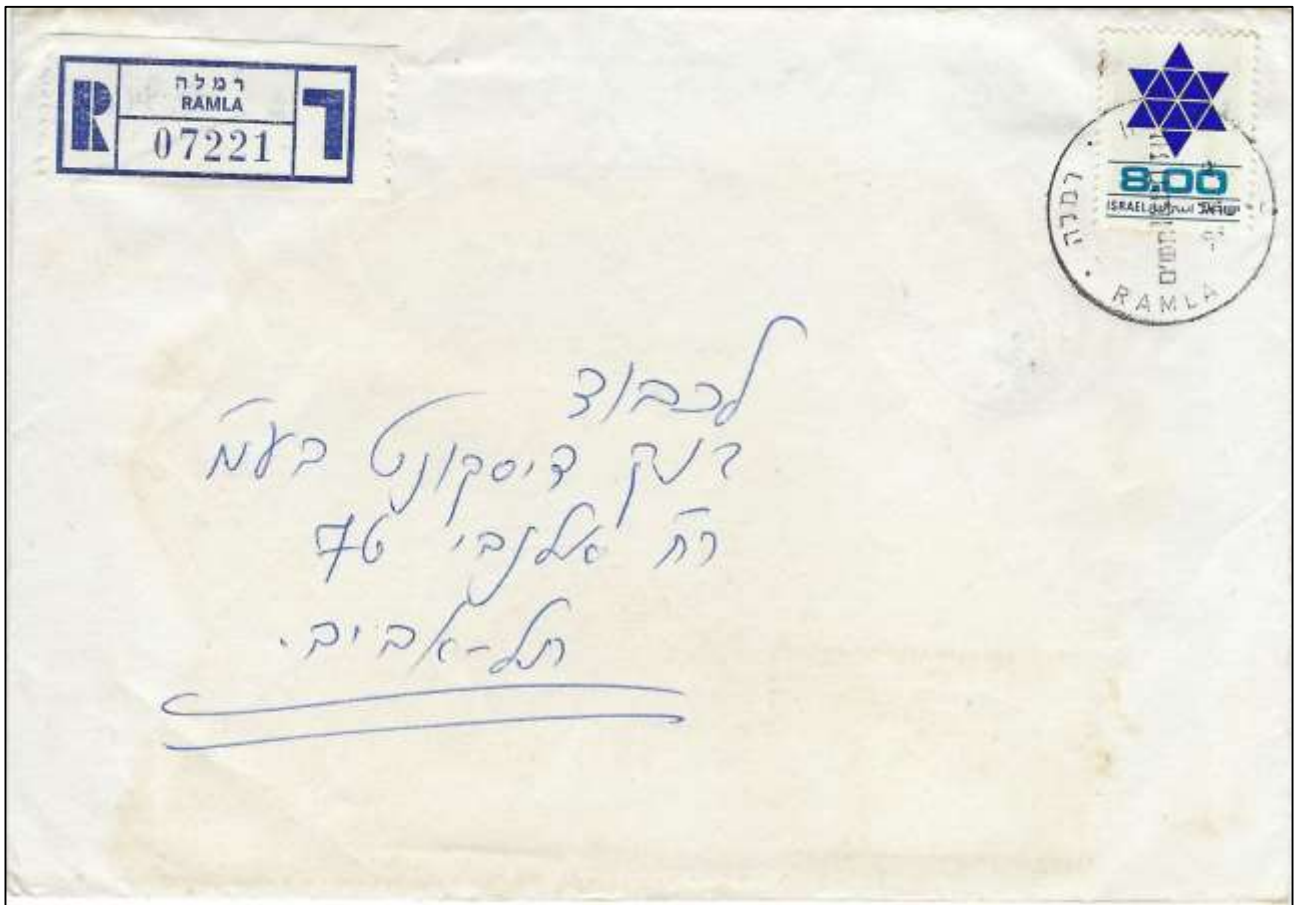 R
רמלה
RAMLA
07221
ר
8.00
ISRAEL اسرائيل ישראל
רמלה
RAMLA
לכבוד
בנק דיסקונט בע״מ
רח׳ אלנבי 76
תל-אביב.